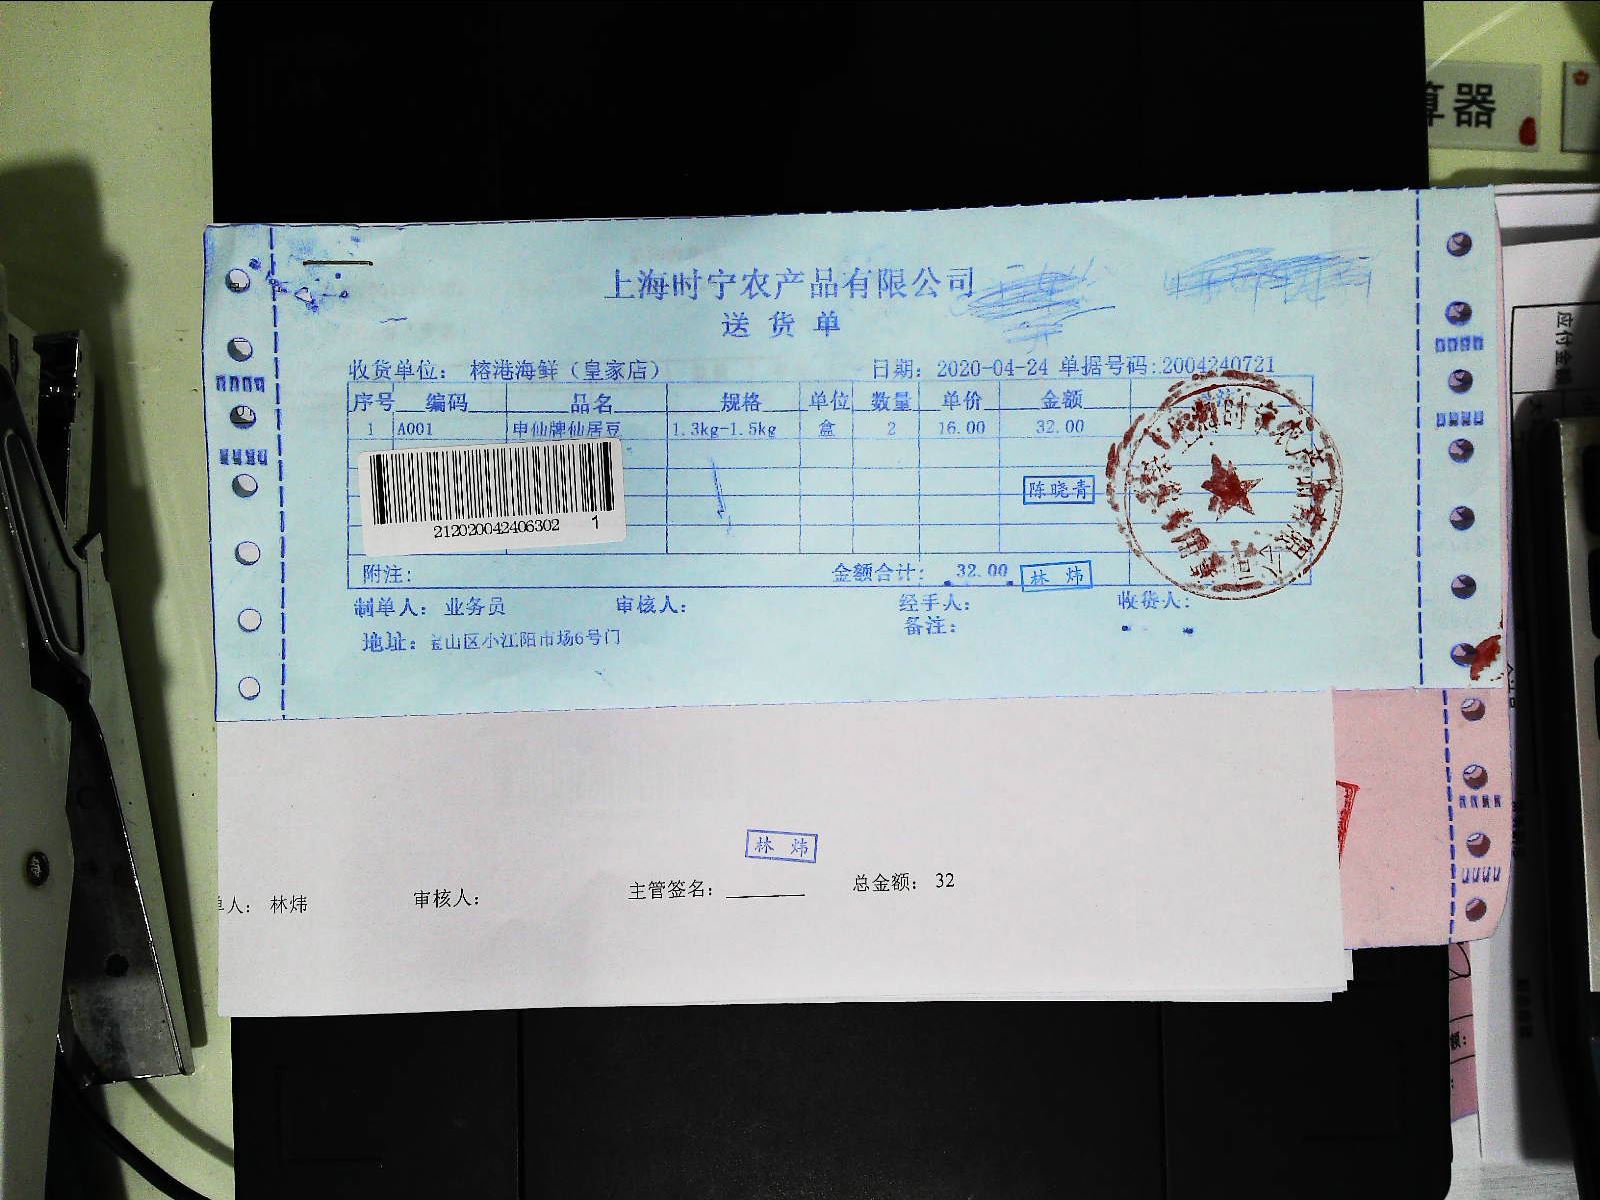 算器
上海时宁农产品有限公司
送 货 单
收货单位： 榕港海鲜（皇家店） 日期：2020-04-24 单据号码:2004240721
序号 编码 品名 规格 单位 数量 单价 金额
1 A001 申仙牌仙居豆 1.3kg-1.5kg 盒 2 16.00 32.00
陈晓青
212020042406302 1
附注: 金额合计: 32.00 林 炜
制单人：业务员 审核人： 经手人： 收货人：
地址：宝山区小江阳市场6号门 备注：
林 炜
单人： 林炜 审核人： 主管签名：_______ 总金额： 32
应付金额